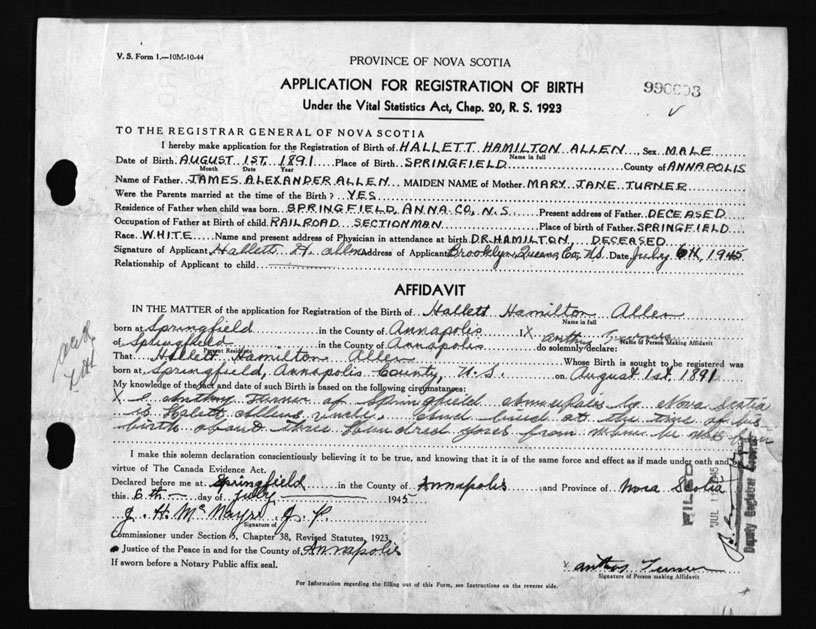 V. S. Form 1.—10M-10-44
PROVINCE OF NOVA SCOTIA
APPLICATION FOR REGISTRATION OF BIRTH
Under the Vital Statistics Act, Chap. 20, R. S. 1923
TO THE REGISTRAR GENERAL OF NOVA SCOTIA
I hereby make application for the Registration of Birth of HALLETT HAMILTON ALLEN Sex MALE
Name in full
Date of Birth AUGUST 1ST 1891 Place of Birth SPRINGFIELD County of ANNAPOLIS
Month Date Year
Name of Father JAMES ALEXANDER ALLEN MAIDEN NAME of Mother MARY JANE TURNER
Were the Parents married at the time of the Birth? YES
Residence of Father when child was born SPRINGFIELD, ANNA. CO, N.S. Present address of Father DECEASED
Occupation of Father at Birth of child RAILROAD SECTIONMAN Place of birth of Father SPRINGFIELD
Race WHITE Name and present address of Physician in attendance at birth DR. HAMILTON, DECEASED
Signature of Applicant Hallett H. Allen Address of Applicant Brooklyn, Queens Co, N.S. Date July 6th, 1945
Relationship of Applicant to child
AFFIDAVIT
IN THE MATTER of the application for Registration of the Birth of Hallett Hamilton Allen
Name in full
born at Springfield in the County of Annapolis X
Name of Person Making Affidavit
of Springfield in the County of Annapolis do solemnly declare:
Present Residence
That Hallett Hamilton Allen Whose Birth is sought to be registered was
born at Springfield, Annapolis County, N.S. on August 1st, 1891
My knowledge of the fact and date of such Birth is based on the following circumstances:
X I Anthony Turner of Springfield Annapolis Co Nova Scotia
is Halett Allens uncle, and lived at the time of his
birth about three Hundred from where he was
I make this solemn declaration conscientiously believing it to be true, and knowing that it is of the same force and effect as if made under oath and
virtue of The Canada Evidence Act.
Declared before me at Springfield in the County of Annapolis and Province of Nova Scotia
this 6th day of July 1945
J. H. J. P.
Signature of
Commissioner under Section 5, Chapter 38, Revised Statutes, 1923
Justice of the Peace in and for the County of Annapolis
If sworn before a Notary Public affix seal.
X Turner
Signature of Person making Affidavit
For Information regarding the filling out of this Form, see Instructions on the reverse side.
FILED
Deputy Registrar General